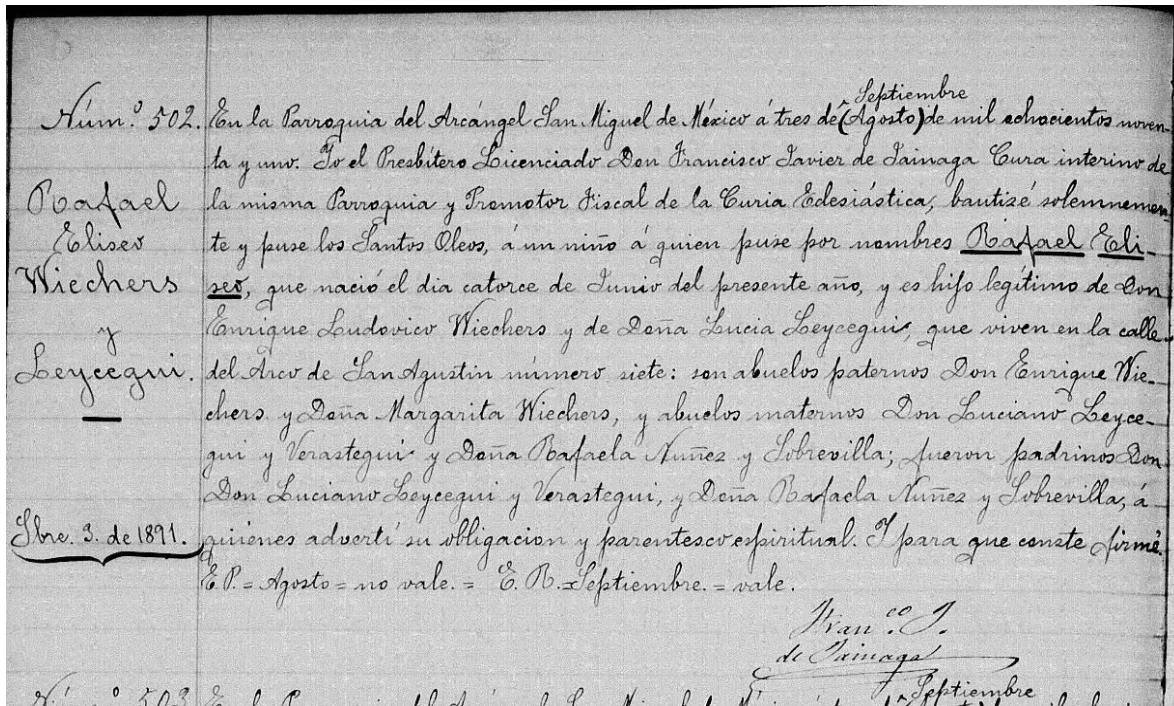 Núm.º 502.
Rafael
Eliseo
Wiechers
y
Leycegui.
Sbre. 3. de 1891.
Septiembre
En la Parroquia del Arcángel San Miguel de México á tres de ^(Agosto) de mil echocientos noven-
ta y uno. Yo el Presbítero Licenciado Don Francisco Javier de Tainaga Cura interino de
la misma Parroquia y Promotor Fiscal de la Curia Eclesiástica, bautizé solemnemen-
te y puse los Santos Oleos, á un niño á quien puse por nombres Rafael Eli-
seo, que nació el dia catorce de Junio del presente año, y es hijo legítimo de Don
Enrique Ludovico Wiechers y de Doña Lucia Leycegui, que viven en la calle
del Arco de San Agustin número siete: son abuelos paternos Don Enrique Wie-
chers y Doña Margarita Wiechers, y abuelos maternos Don Luciano Leyce-
gui y Verastegui y Doña Rafaela Nuñez y Sobrevilla; fueron padrinos Don
Don Luciano Leycegui y Verastegui, y Doña Rafaela Nuñez y Sobrevilla, á
quiénes advertí su obligacion y parentesco espiritual. Y para que conste firmé.
E. P. = Agosto = no vale. = E. R. = Septiembre. = vale.
Fran.co J.
de Tainaga
Septiembre